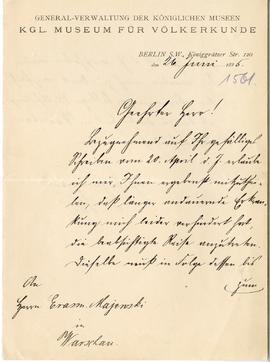 GENERAL-VERWALTUNG DER KÖNIGLICHEN MUSEEN
KGL. MUSEUM FÜR VÖLKERKUNDE
BERLIN S.W., Königgrätzer Str. 120
den 26 Juni 1896.
1561.
Geehrter Herr!
Bezugnehmend auf Ihr gefälliges
Schreiben vom 20. April d. J. erlaube
ich mir, Ihnen ergebenst mitzuthei-
len, daß lange andauernde Erkran-
kung mich leider verhindert hat,
die beabsichtigte Reise anzutreten.
Dieselbe muß in Folge dessen bis
zum
An
Herrn Erasm. Majewski
in
Warschau.